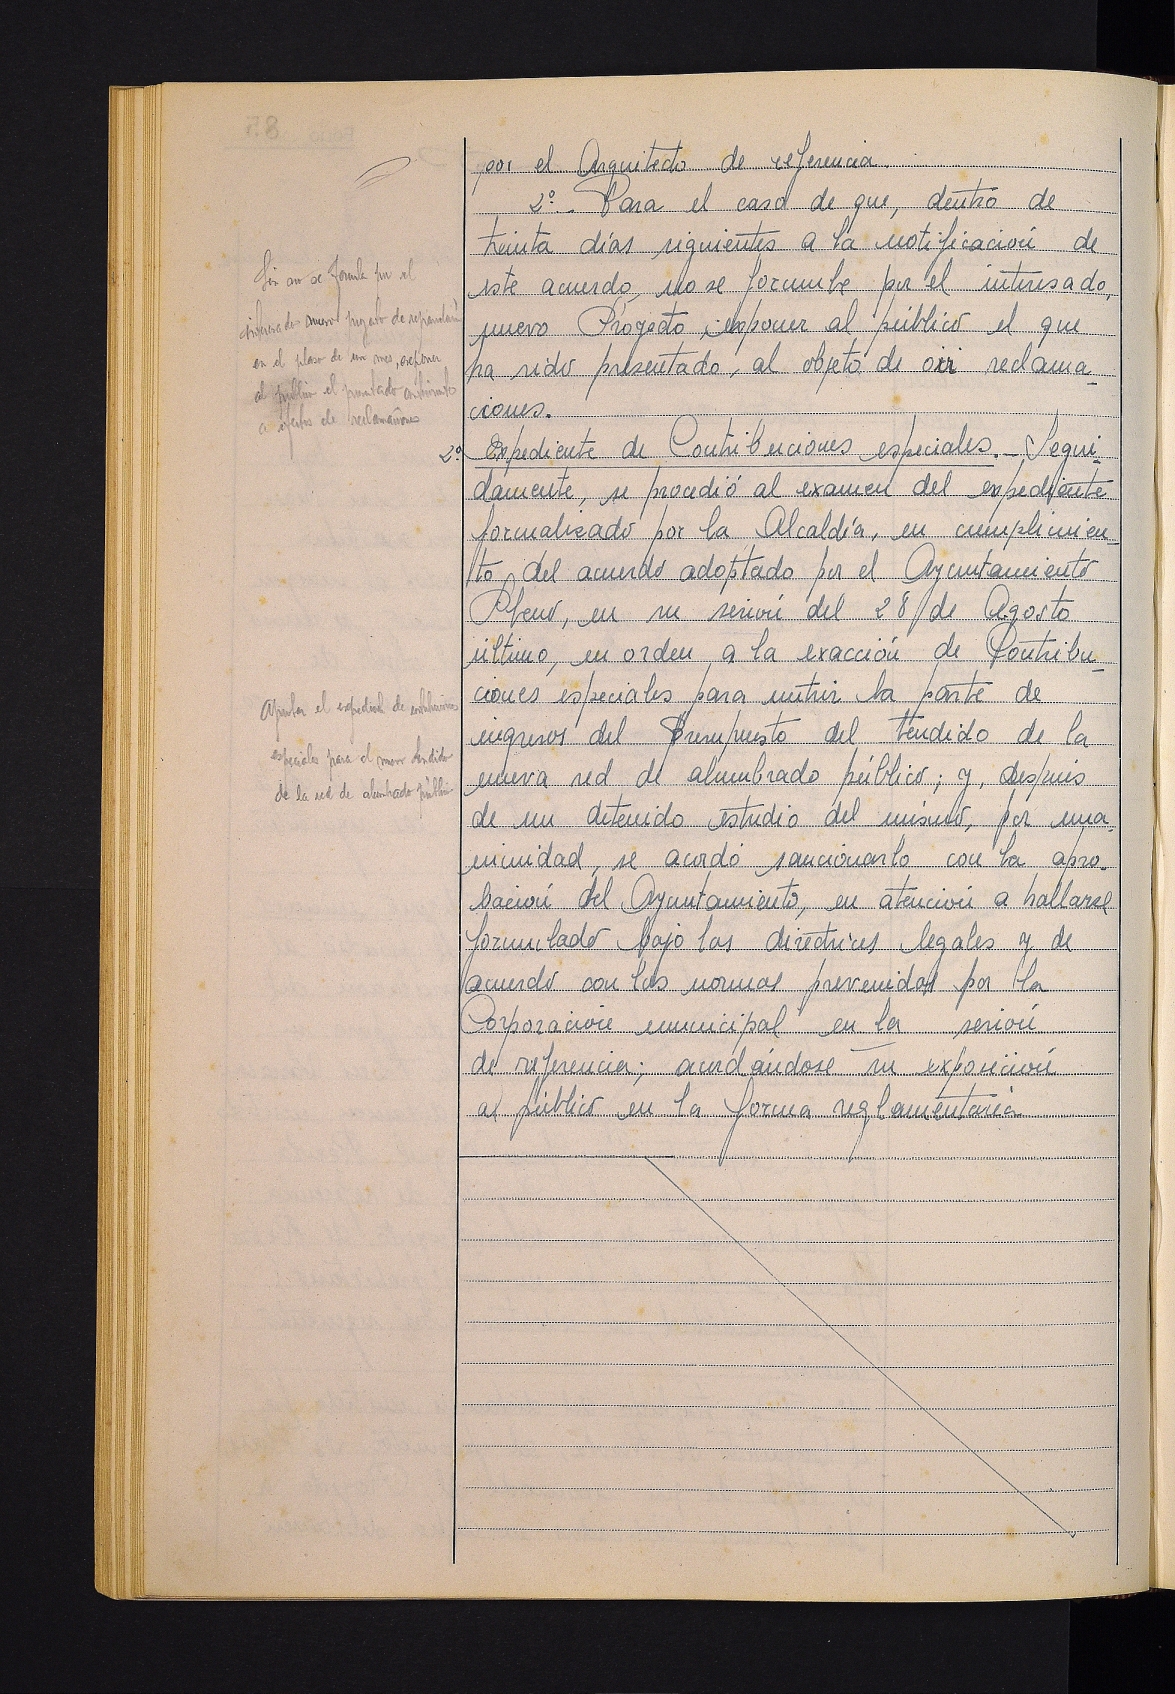 por el Arquitecto de referencia.
2º.- Para el caso de que, dentro de
treinta días siguientes a la notificación de
este acuerdo, no se formule por el interesado,
nuevo Proyecto, exponer al público el que
ha sido presentado, al objeto de oir reclama-
ciones.
2º Expediente de Contribuciones especiales.- Segui-
damente, se procedió al examen del expediente
formalizado por la Alcaldía, en cumplimien-
to del acuerdo adoptado por el Ayuntamiento
Pleno, en su sesión del 28 de Agosto
último, en orden a la exacción de Contribu-
ciones especiales para nutrir la parte de
ingresos del Presupuesto del tendido de la
nueva red de alumbrado público; y, después
de un detenido estudio del mismo, por una-
nimidad, se acordó sancionarlo con la apro-
bación del Ayuntamiento, en atención a hallarse
formulado bajo las directrices legales y de
acuerdo con las normas prevenidas por la
Corporación municipal en la sesión
de referencia; acordándose su exposición
al público en la forma reglamentaria
Si no se formula por el
interesado nuevo de
en el plazo de un mes, exponer
al público el presentado
a efectos de reclamaciones
Aprobar el expediente de contribuciones
especiales para el nuevo tendido
de la red de alumbrado público